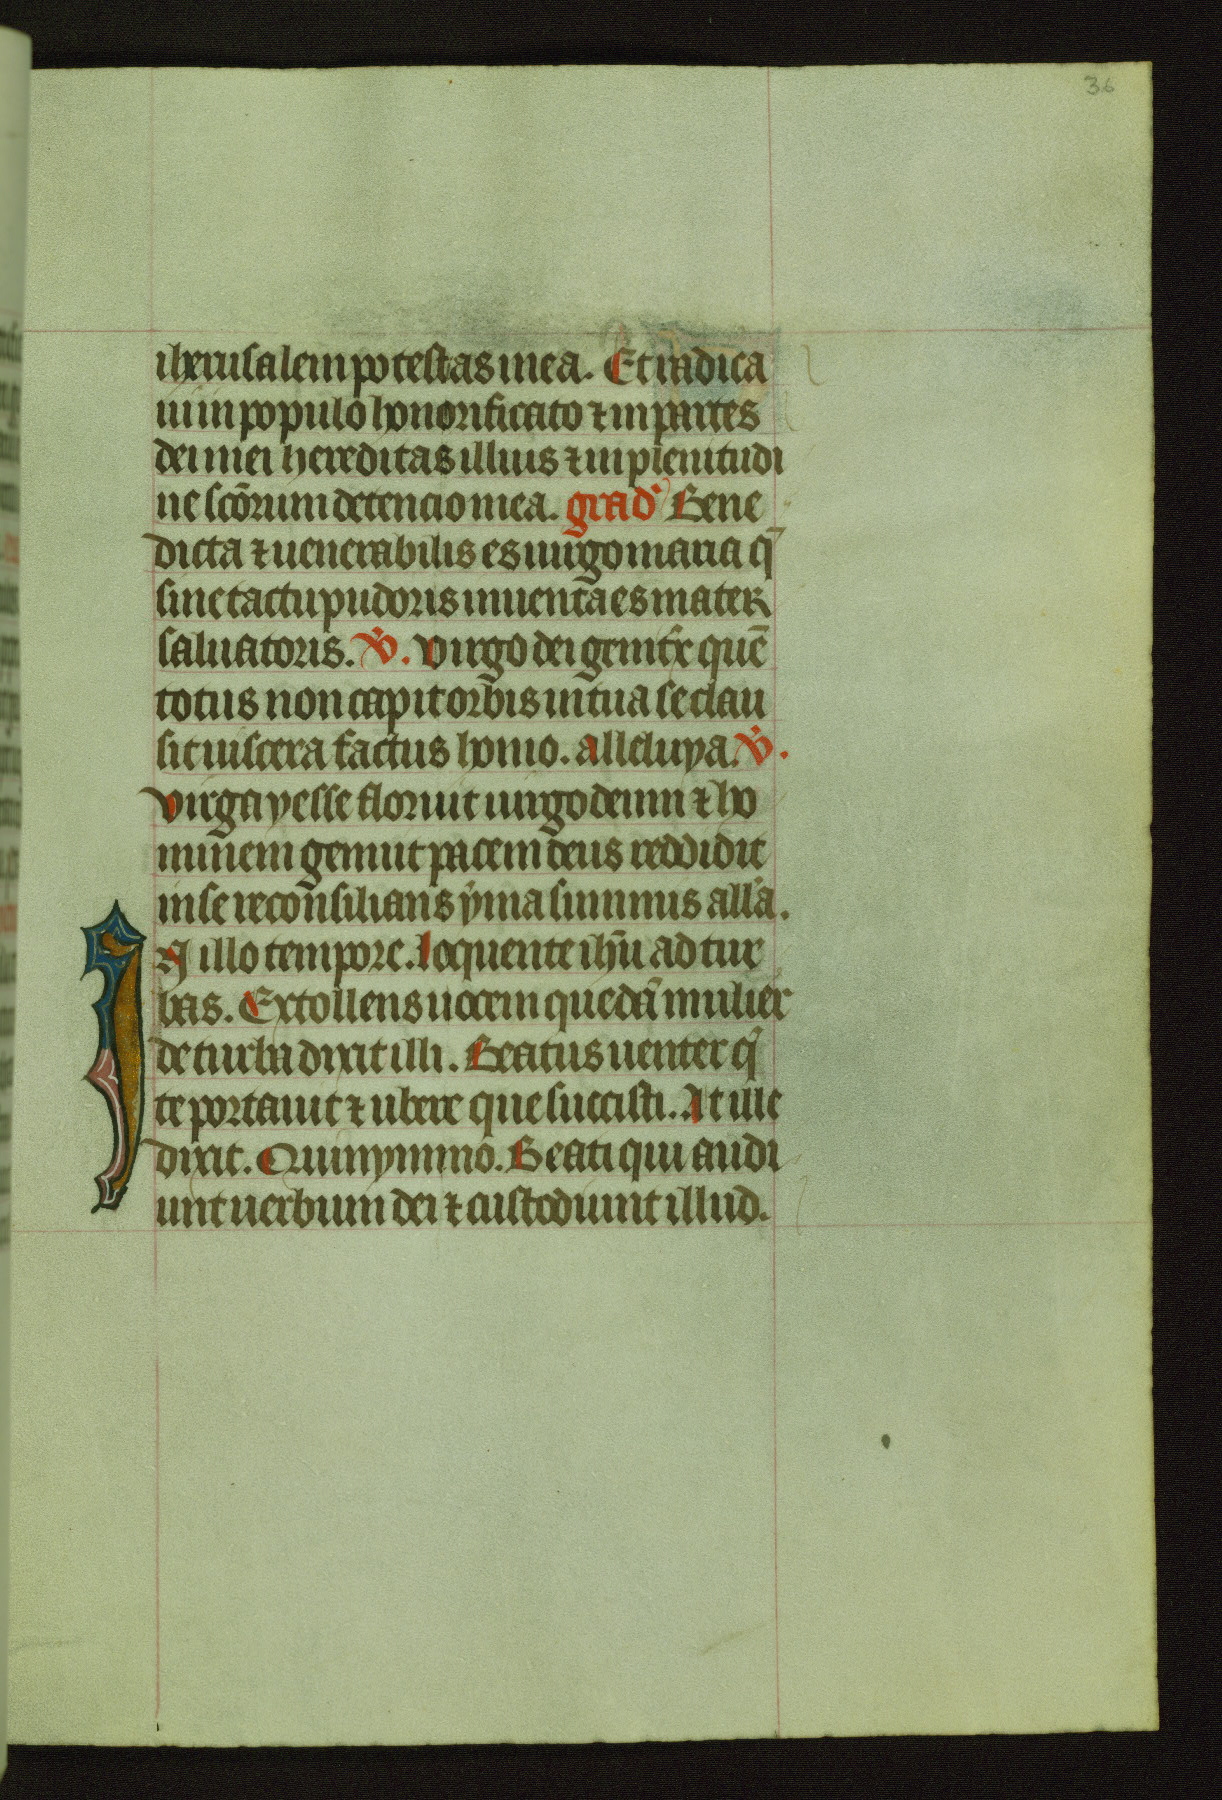 36
iherusalem potestas mea. Et radica
ui in populo honorificato ⁊ in partes
dei mei hereditas illius ⁊ in plenitudi
ne scõrum detencio mea. grad Bene
dicta ⁊ uenerabilis es uirgo maria q̄
sine tactu pudoris inuenta es mater
saluatoris. V̇. Virgo dei genitx quē
totus non capit orbis in tua se clau
sit uiscera factus homo. alleluya. V̇.
Virga yesse floruit uirgo deum ⁊ ho
minem genuit pacem deus reddidit
in se reconsilians yma summus all'a.
In illo tempore. loquente ihū ad tur
bas. Extollens uocem quedā mulier
de turba dixit illi. Beatus uenter q
te portauit ⁊ ubere que succisti. At ille
dixit. Quinymmo. Beati qui audi
unt uerbum dei ⁊ custodiunt illud.